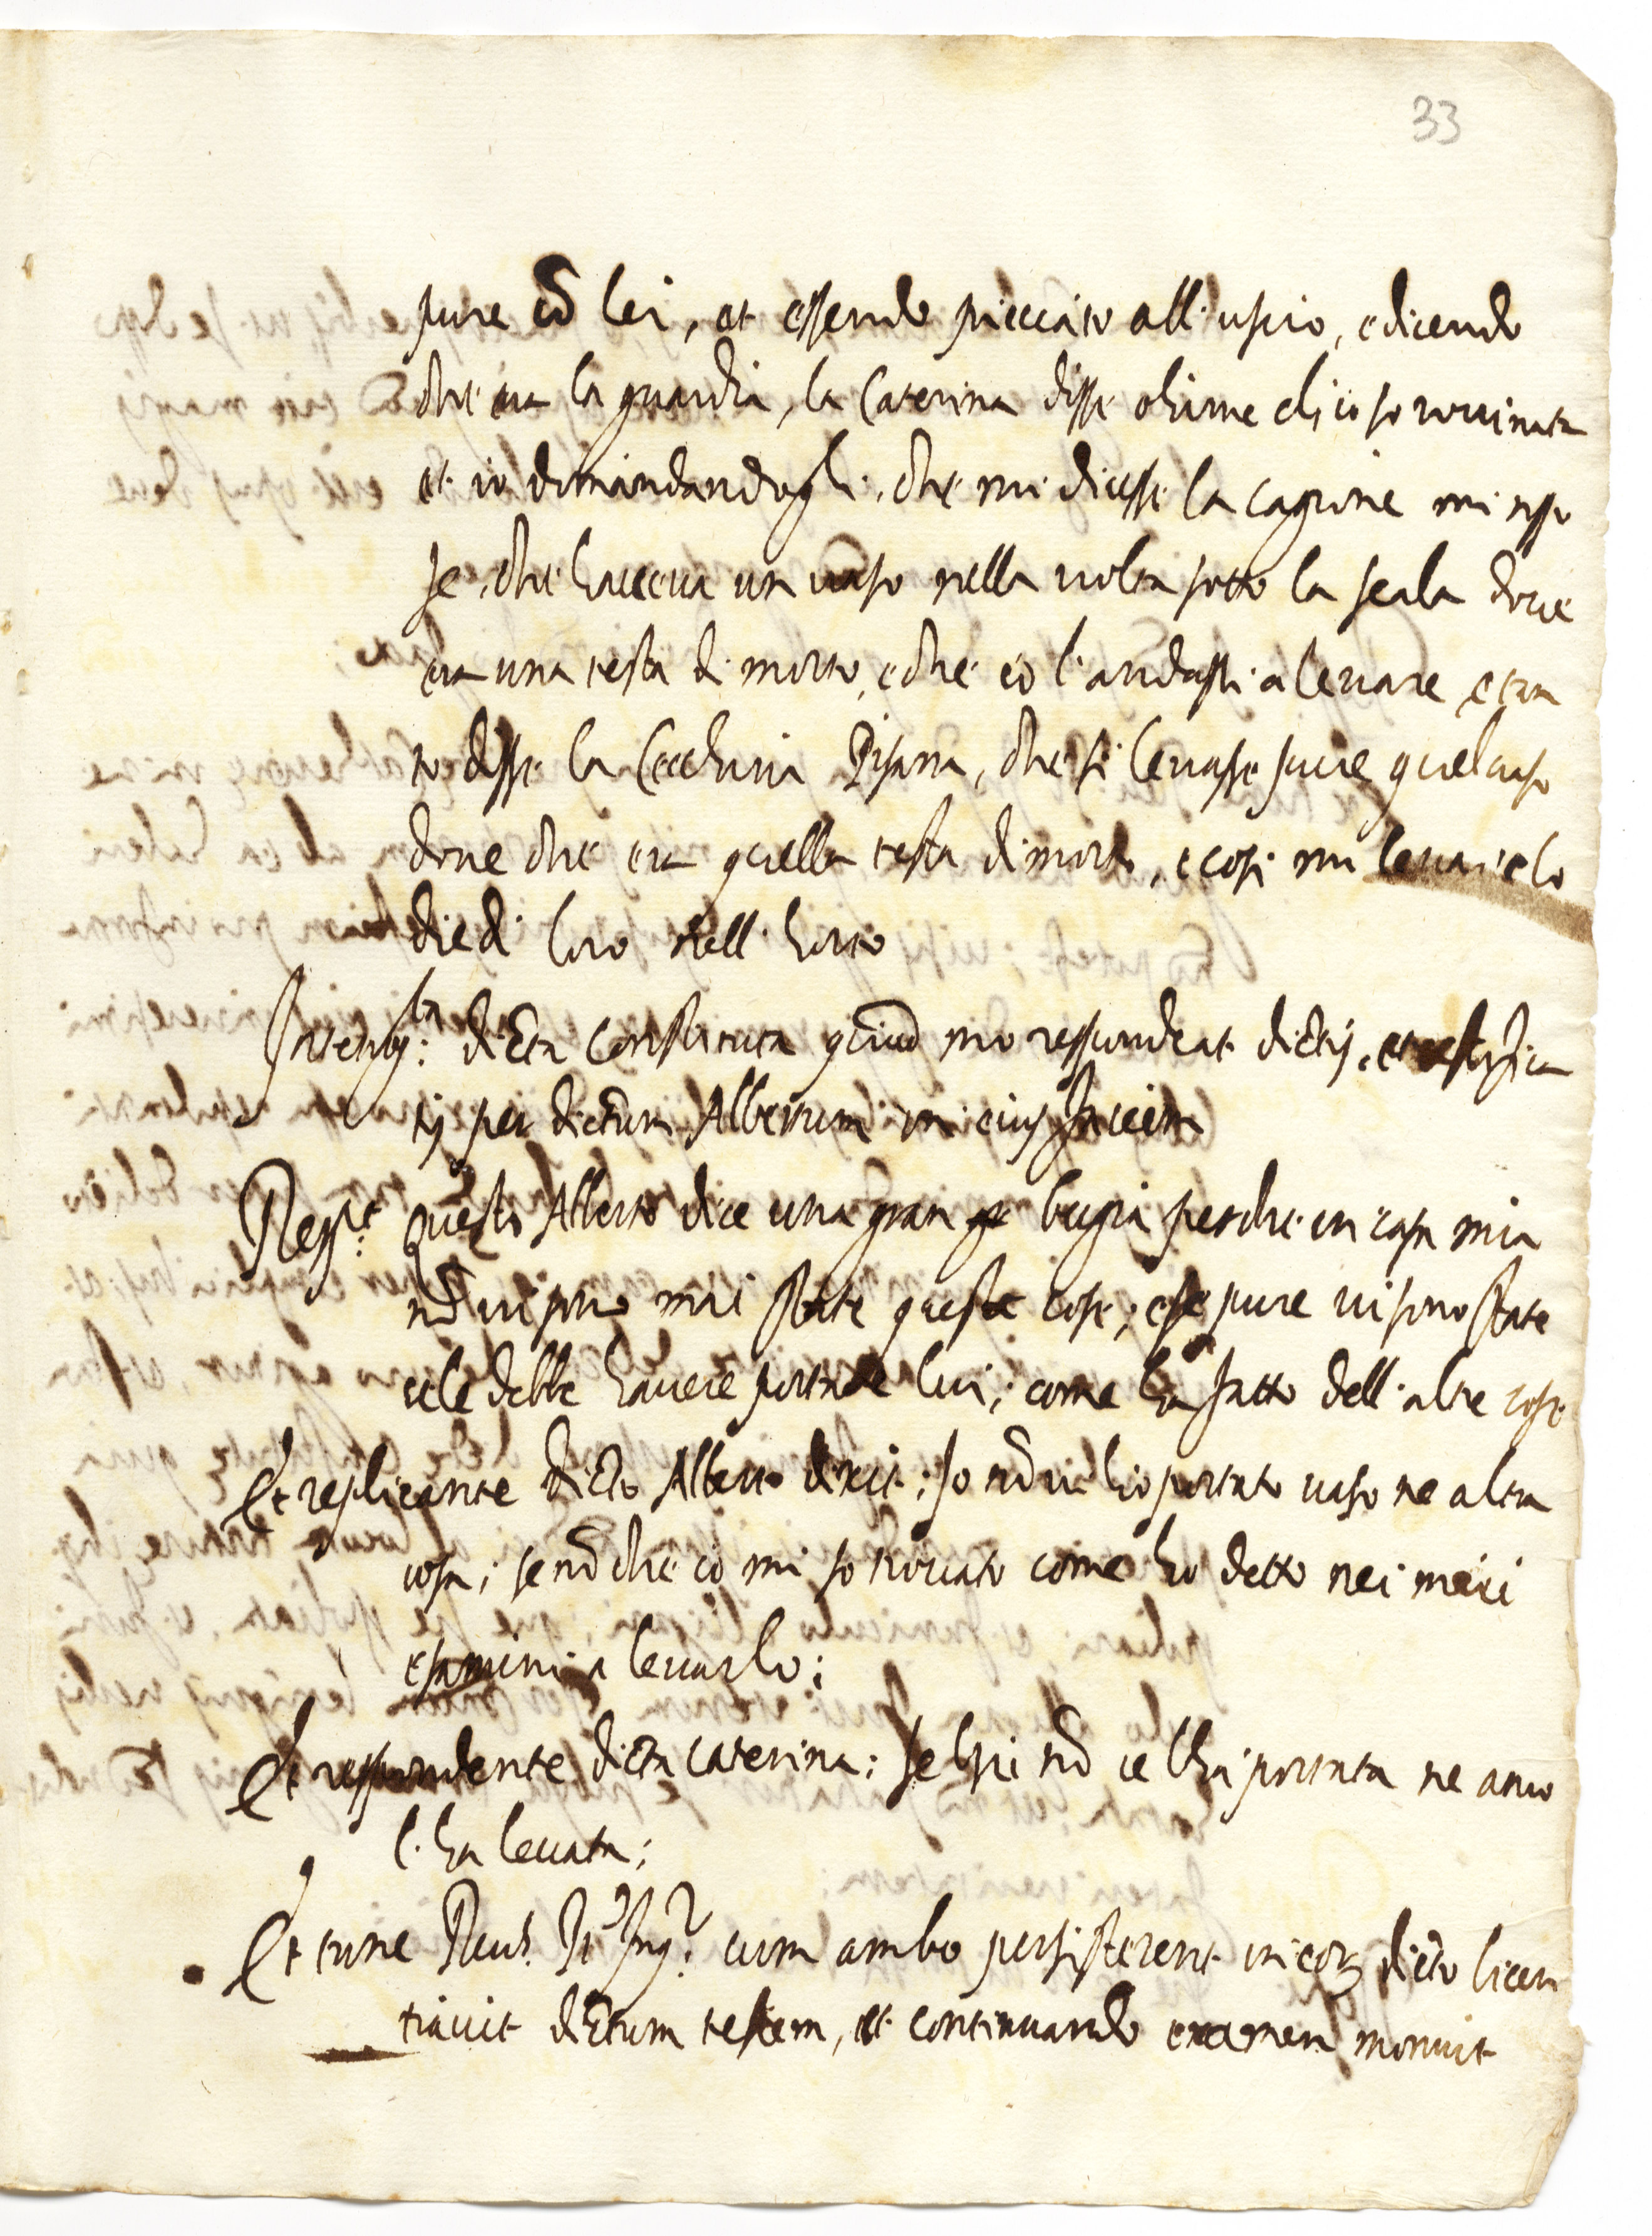 33
pure cō lei, et essendo picciato all'uscio, e dicendo
che era la guardia, la Caterina disse ohime ch'io so rouinata
et io dimandandogli, che mi dicesse la cagione mi rispo
se, che haueua un uaso nella uolta sotto la scala doue
era una testa di morto, e che io l'andassi a leuare e tan
to disse la Cecchina Pisana, che si leuasse pure quel uaso
doue che era quella testa di morto, e cosi mi leuai e lo
diedi loro nell'horto
Interrog:ta dicta Constituta quid mo respondeat dictis, et testifica
tis per dictum Albertum in eius faciem
Resp:t Questo Alberto dice una gran bugia perche in casa mia
nō ui sono mai state queste cose; e se pure ui sono state
ue le debbe hauere portate lui, come ha fatto dell'altre cose
Et replicante dicto Alberto dixit: Io nō ui ho portato uaso ne altra
cosa, se nō che io mi so trouato come ho detto nei miei
esamini a leuarlo;
Et respondente dicta Caterina: se lui nō ce l'ha portata ne anco
l'ha leuata;
Et tunc Reu.s P. Inq.r cum ambo persisterent in eorū dicto licen
tiauit dictum testem, et continuando examen monuit